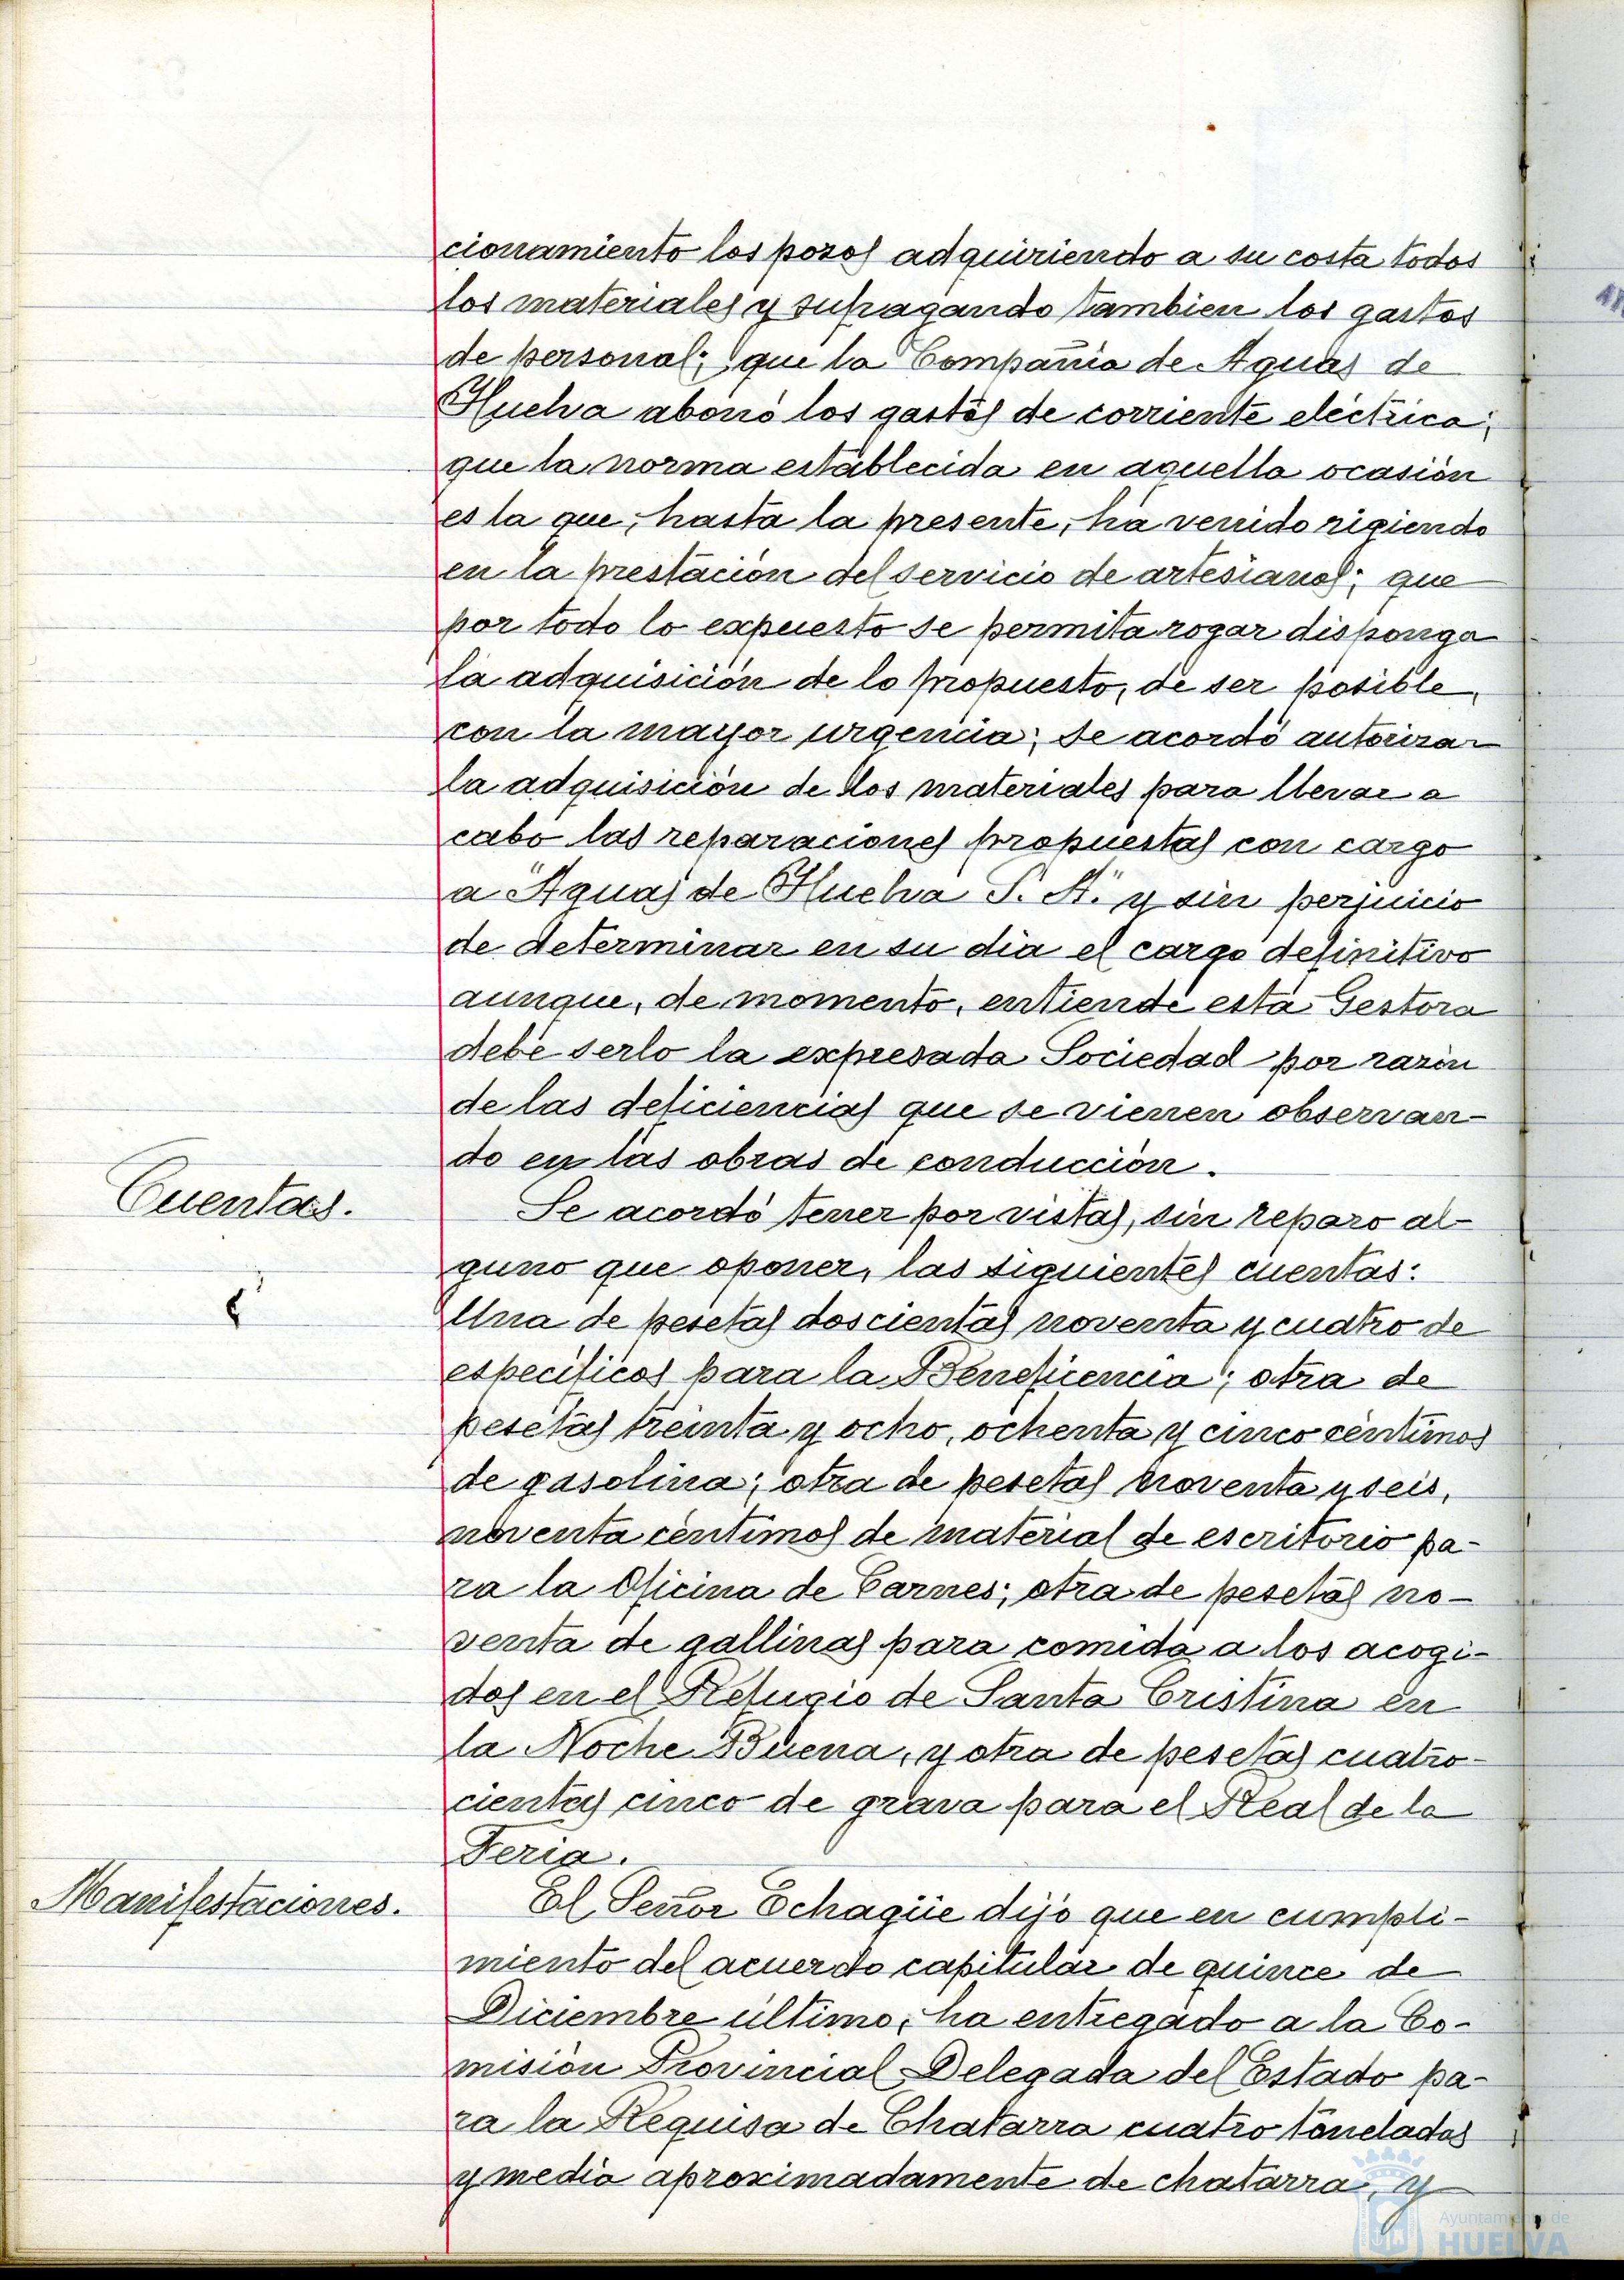 cionamiento los pozos adquiriendo a su costa todos
los materiales y sufragando tambien los gastos
de personal; que la Compañía de Aguas de
Huelva abonó los gastos de corriente eléctrica;
que la norma establecida en aquella ocasión
es la que, hasta la presente, ha venido rigiendo
en la prestación del servicio de artesianos; que
por todo lo expuesto se permita rogar disponga
la adquisición de lo propuesto, de ser posible,
con la mayor urgencia; se acordó autorizar
la adquisición de los materiales para llevar a
cabo las reparaciones propuestas con cargo
a "Aguas de Huelva S. A." y sin perjuicio
de determinar en su dia el cargo definitivo
aunque, de momento, entiende esta Gestora
debe serlo la expresada Sociedad por razón
de las deficiencias que se vienen observan-
do en las obras de conducción.
Cuentas.
Se acordó tener por vistas, sin reparo al-
guno que oponer, las siguientes cuentas:
Una de pesetas doscientas noventa y cuatro de
específicos para la Beneficencia; otra de
pesetas treinta y ocho, ochenta y cinco céntimos
de gasolina; otra de pesetas noventa y seis,
noventa céntimos de material de escritorio pa-
ra la Oficina de Carnes; otra de pesetas no-
venta de gallinas para comida a los acogi-
dos en el Refugio de Santa Cristina en
la Noche Buena, y otra de pesetas cuatro-
cientas cinco de grava para el Real de la
Feria.
Manifestaciones.
El Señor Echagüe dijo que en cumpli-
miento del acuerdo capitular de quince de
Diciembre último, ha entregado a la Co-
misión Provincial Delegada del Estado pa-
ra la Requisa de Chatarra cuatro toneladas
y media aproximadamente de chatarra, y
Ayuntamiento de
HUELVA